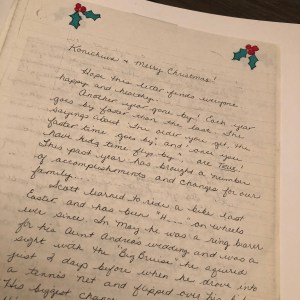 Konichiwa & Merry Christmas!
Hope this letter finds everyone
happy and healthy.
Another year gone by! Each year
goes by faster than the last. The
sayings about "the older you get, the
faster time goes by, and once you
have kids time flys by"... are true!
This past year has brought a number
of accomplishments and changes for our
family.
Scott learned to ride a bike last
Easter and has been "H---- on wheels
ever since. In May he was a ring bearer
for his Aunt Andrea's wedding and was a
sight with the "Big Bruise" he aquired
just 2 days before when he drove into
a tennis net and flipped over his
His biggest